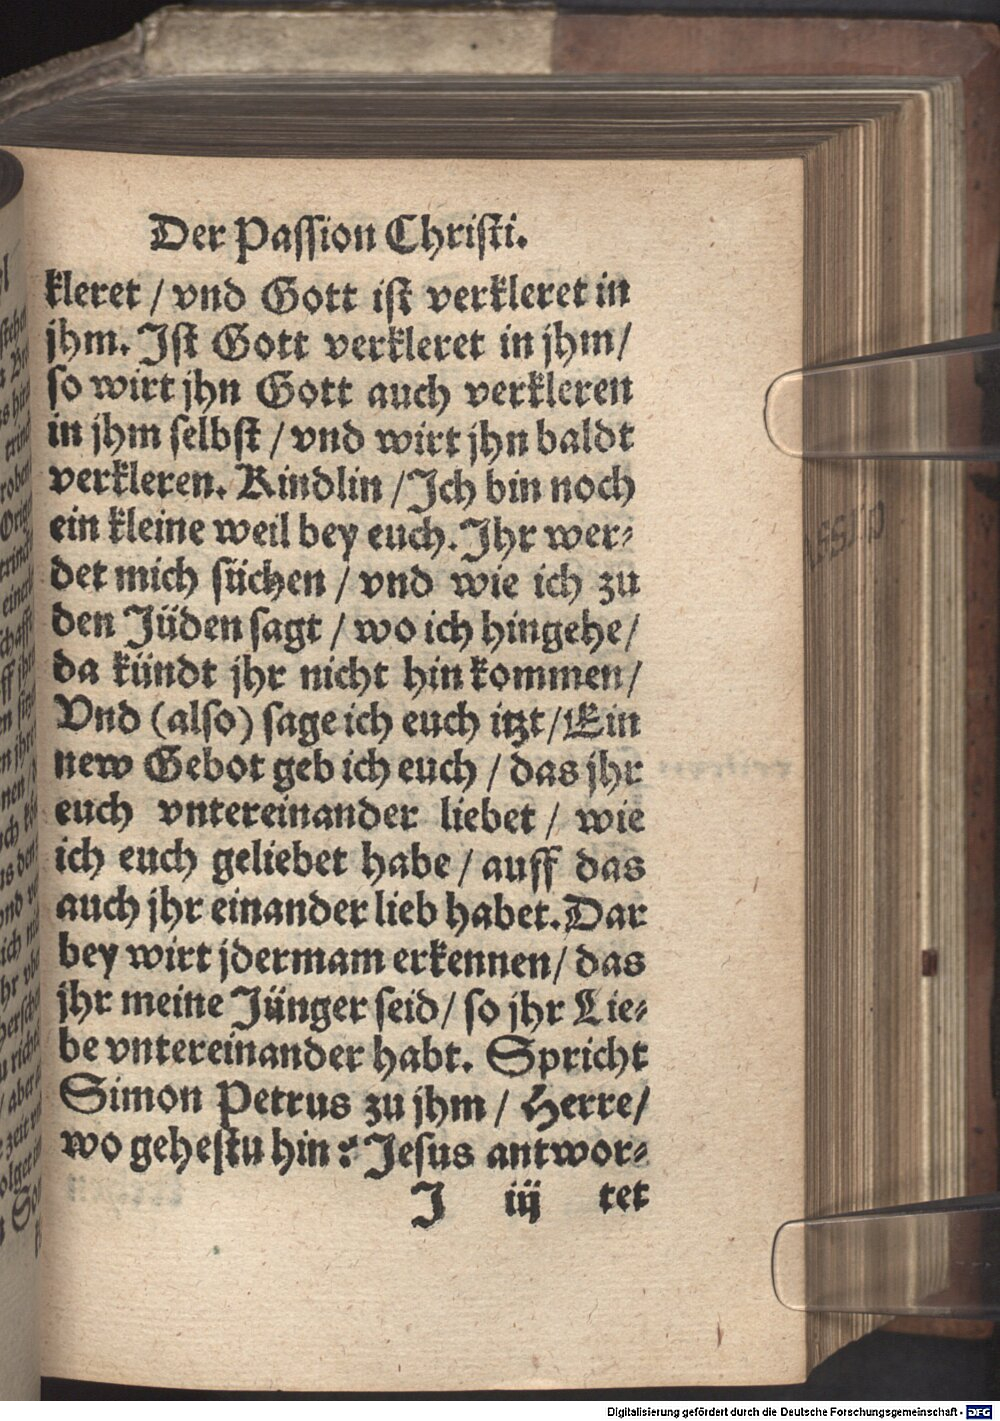 Der Passion Christi.
kleret / vnd Gott ist verkleret in
jhm. Ist Gott verkleret in jhm /
so wirt jhn Gott auch verkleren
in jhm selbst / vnd wirt jhn baldt
verkleren. Kindlin / Ich bin noch
ein kleine weil bey euch. Ihr wer-
det mich süchen / vnd wie ich zu
den Jüden sagt / wo ich hingehe /
da kündt jhr nicht hin kommen /
Vnd (also) sage ich euch itzt / Ein
new Gebot geb ich euch / das jhr
euch vntereinander liebet / wie
ich euch geliebet habe / auff das
auch jhr einander lieb habet. Dar
bey wirt jdermam erkennen / das
jhr meine Jünger seid / so jhr Lie-
be vntereinander habt. Spricht
Simon Petrus zu jhm / Herre /
wo gehestu hin? Jesus antwor-
J iij tet
Digitalisierung gefördert durch die Deutsche Forschungsgemeinschaft - DFG